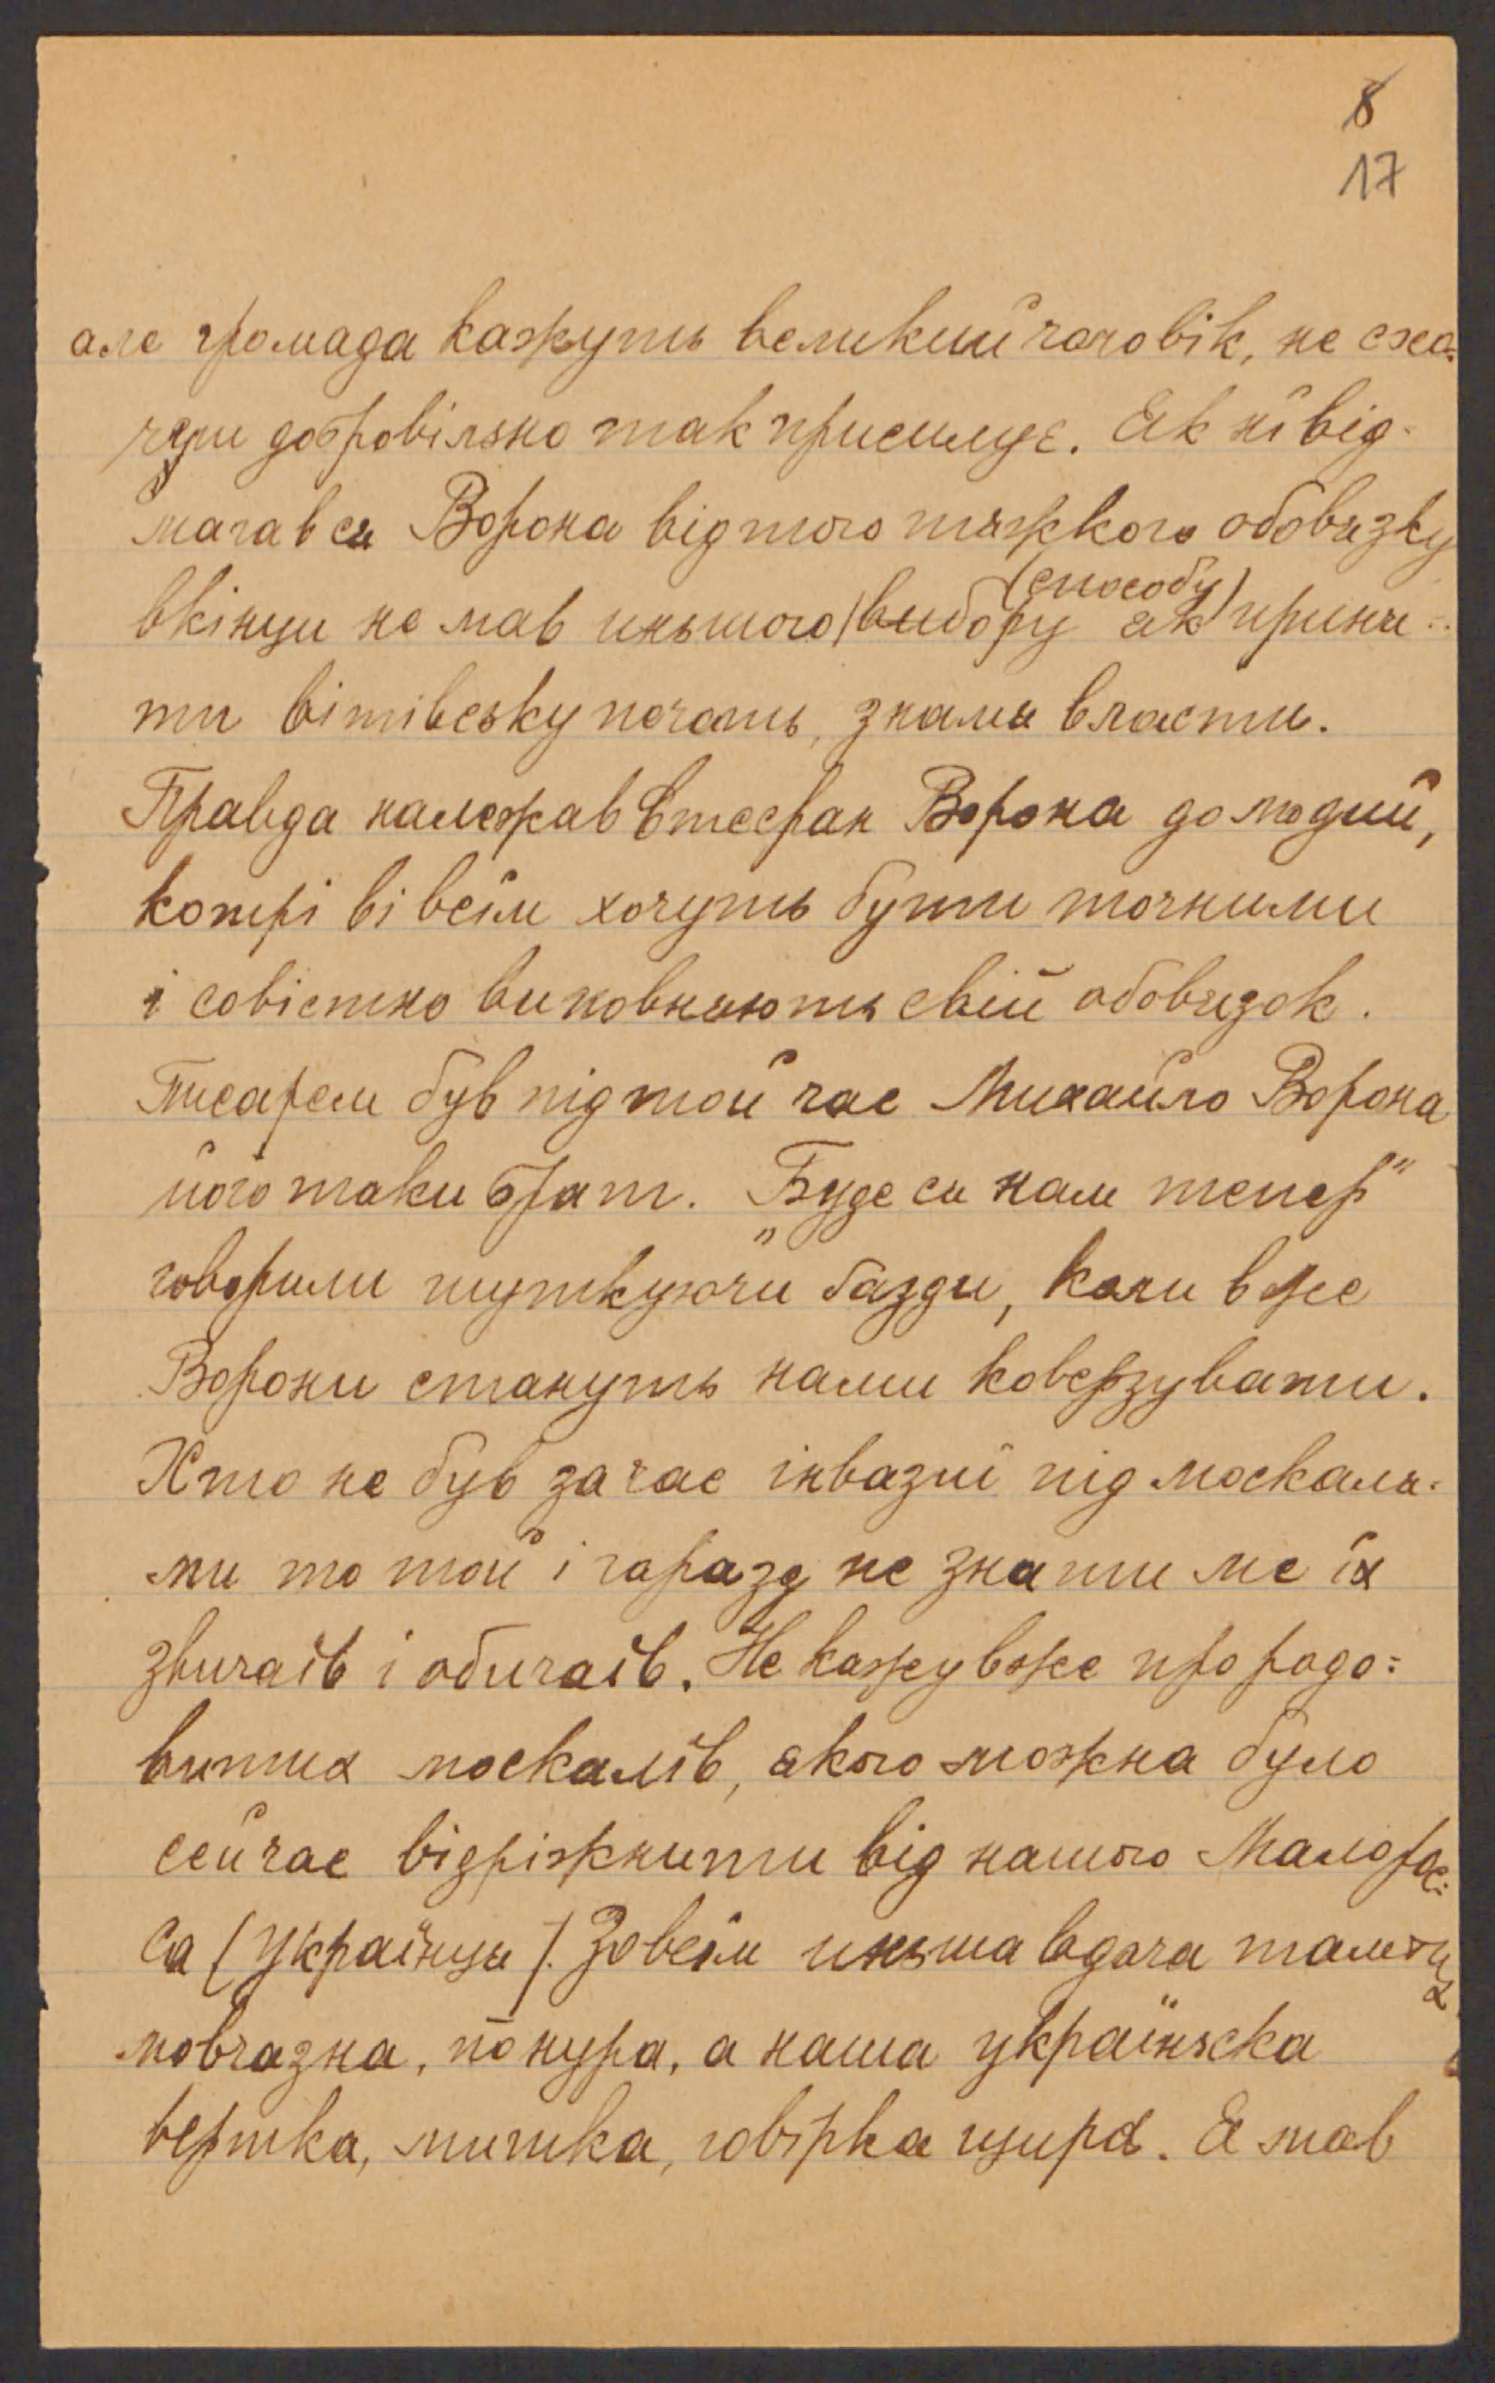 8
17
але громада кажуть великий чоловік, не схо-
чеш добровільно так присилує. Як нї від-
магав ся Ворона від того тяжкого обовязку
(способу)
вкінци не мав иньшого) вибору як приня-
ти війтівську печать, знамя власти.
Правда належав Стефан Ворона до людий,
котрі ві всїм хочуть бути точними
і совістно виповняють свій обовязок.
Писарем був під той час Михайло Ворона
його таки брат. „Буде ся нам тепер"
говорили шуткуючи ґазди, коли вже
Ворони стануть нами коверзувати.
Хто не був за час інвазиї під москаля-
ми то той і гаразд не знати ме їх
звичаїв і обичаїв. Не кажу вже про родо=
витих москалїв, якого можна було
сейчас відріжнити від нашого Малоро-
са (Українця). Зовсїм иньша вдача тамтих
мовчазна, понура, а наша україньска
вертка, митка, говірка щира. Я мав